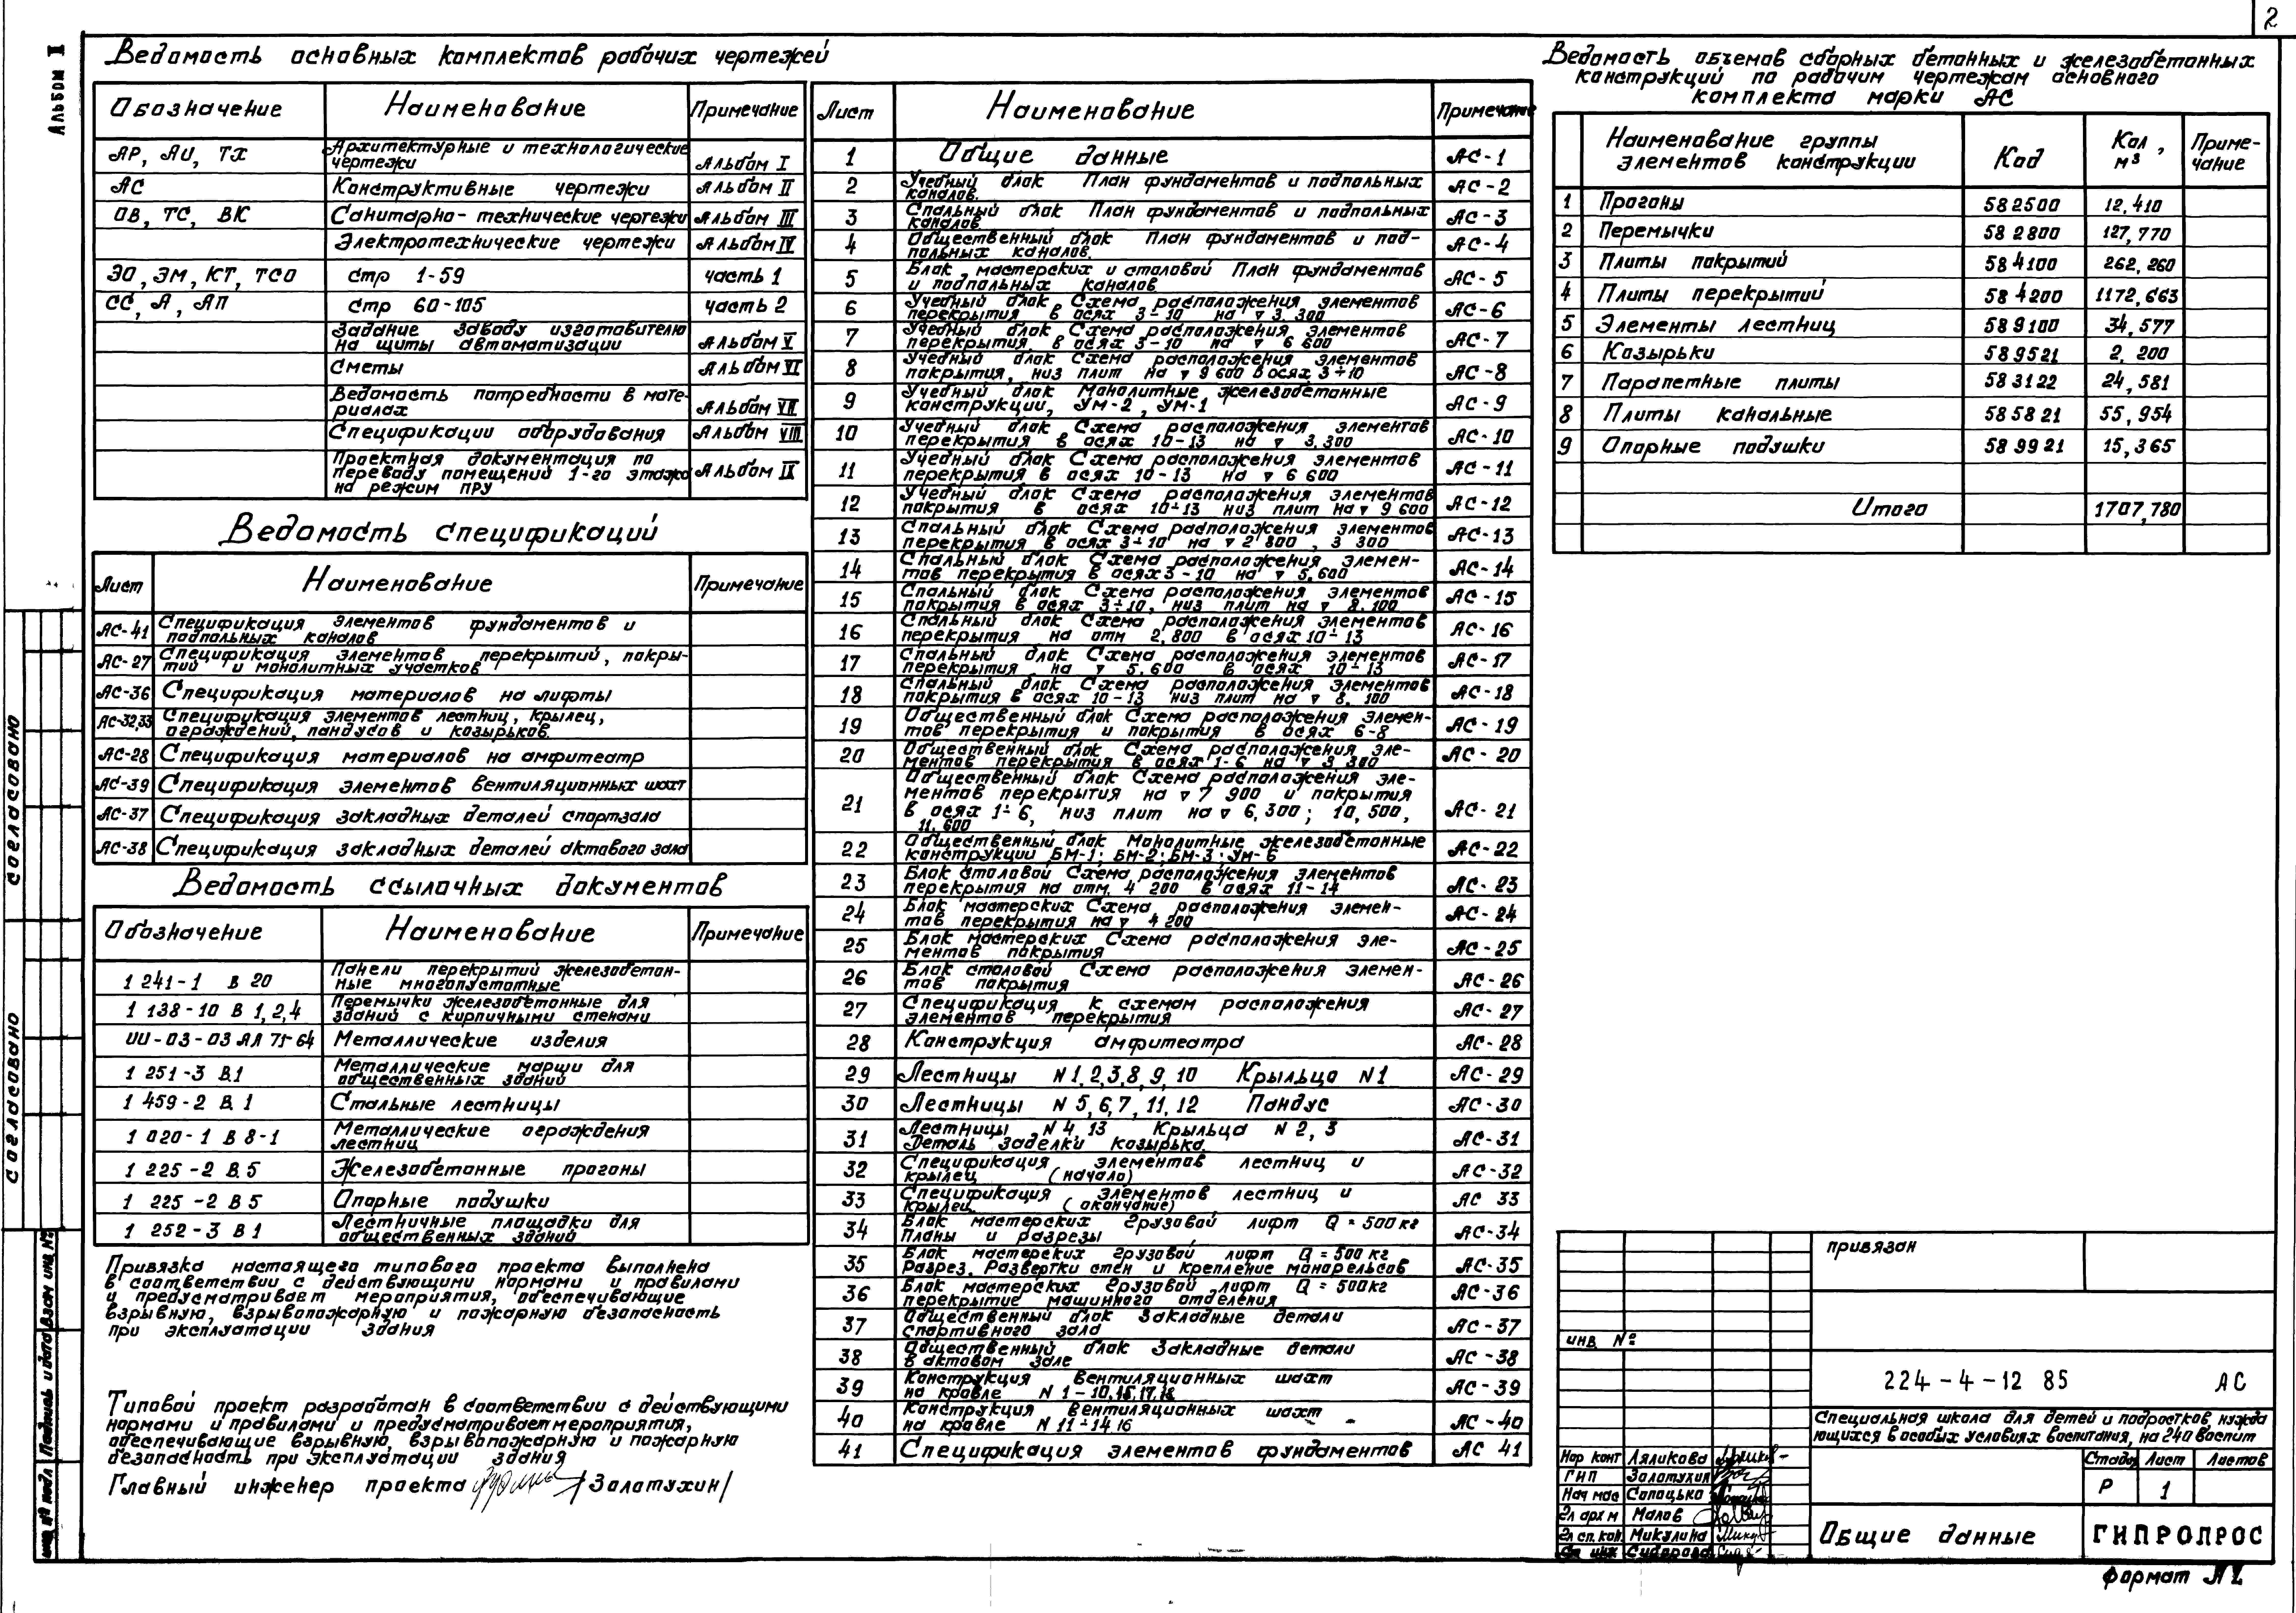 2
Альбом II
Ведомость основных комплектов рабочих чертежей
Обозначение Наименование Примечание
АР, АИ, ТХ Архитектурные и технологические чертежи Альбом I
АС Конструктивные чертежи Альбом II
ОВ, ТС, ВК Санитарно-технические чертежи Альбом III
Электротехнические чертежи Альбом IV
ЭО, ЭМ, КТ, ТСО стр 1-59 часть 1
СС, А, АП стр 60-105 часть 2
Задание заводу изготовителю на щиты автоматизации Альбом V
Сметы Альбом VI
Ведомость потребности в материалах Альбом VII
Спецификации оборудования Альбом VIII
Проектная документация по переводу помещений 1-го этажа на режим ПРУ Альбом IX
Ведомость спецификаций
Лист Наименование Примечание
АС-41 Спецификация элементов фундаментов и подпольных каналов
АС-27 Спецификация элементов перекрытий, покрытий и монолитных участков
АС-36 Спецификация материалов на лифты
АС-32,33 Спецификация элементов лестниц, крылец, ограждений, пандусов и козырьков.
АС-28 Спецификация материалов на амфитеатр
АС-39 Спецификация элементов вентиляционных шахт
АС-37 Спецификация закладных деталей спортзала
АС-38 Спецификация закладных деталей актового зала
Ведомость ссылочных документов
Обозначение Наименование Примечание
1 241-1 В 20 Панели перекрытий железобетонные многопустотные
1 138-10 В 1,2,4 Перемычки железобетонные для зданий с кирпичными стенами
ИИ-03-03 АЛ 71-64 Металлические изделия
1 251-3 В.1 Металлические марши для общественных зданий
1 459-2 В.1 Стальные лестницы
1 020-1 В 8-1 Металлические ограждения лестниц
1 225-2 В.5 Железобетонные прогоны
1 225-2 В 5 Опорные подушки
1 252-3 В 1 Лестничные площадки для общественных зданий
Привязка настоящего типового проекта выполнена
в соответствии с действующими нормами и правилами
и предусматривает мероприятия, обеспечивающие
взрывную, взрывопожарную и пожарную безопасность
при эксплуатации здания
Типовой проект разработан в соответствии с действующими
нормами и правилами и предусматривает мероприятия,
обеспечивающие взрывную, взрывопожарную и пожарную
безопасность при эксплуатации здания
Главный инженер проекта /Залатухин/
Лист Наименование Примечание
1 Общие данные АС-1
2 Учебный блок План фундаментов и подпольных каналов. АС-2
3 Спальный блок План фундаментов и подпольных каналов АС-3
4 Общественный блок План фундаментов и подпольных каналов. АС-4
5 Блок мастерских и столовой План фундаментов и подпольных каналов АС-5
6 Учебный блок Схема расположения элементов перекрытия в осях 3÷10 на ▽ 3.300 АС-6
7 Учебный блок Схема расположения элементов перекрытия в осях 3-10 на ▽ 6 600 АС-7
8 Учебный блок Схема расположения элементов покрытия, низ плит на ▽ 9 600 в осях 3÷10 АС-8
9 Учебный блок Монолитные железобетонные конструкции, УМ-2, УМ-1 АС-9
10 Учебный блок Схема расположения элементов перекрытия в осях 10-13 на ▽ 3.300 АС-10
11 Учебный блок Схема расположения элементов перекрытия в осях 10-13 на ▽ 6 600 АС-11
12 Учебный блок Схема расположения элементов покрытия в осях 10÷13 низ плит на ▽ 9 600 АС-12
13 Спальный блок Схема расположения элементов перекрытия в осях 3÷10 на ▽ 2 800, 3 300 АС-13
14 Спальный блок Схема расположения элементов перекрытия в осях 3-10 на ▽ 5.600 АС-14
15 Спальный блок Схема расположения элементов покрытия в осях 3÷10, низ плит на ▽ 8.100 АС-15
16 Спальный блок Схема расположения элементов перекрытия на отм 2.800 в осях 10÷13 АС-16
17 Спальный блок Схема расположения элементов перекрытия на ▽ 5.600 в осях 10÷13 АС-17
18 Спальный блок Схема расположения элементов покрытия в осях 10-13 низ плит на ▽ 8.100 АС-18
19 Общественный блок Схема расположения элементов перекрытия и покрытия в осях 6-8 АС-19
20 Общественный блок Схема расположения элементов перекрытия в осях 1-6 на ▽ 3 300 АС-20
21 Общественный блок Схема расположения элементов перекрытия на ▽ 7 900 и покрытия в осях 1÷6, низ плит на ▽ 6,300; 10,500, 11,600 АС-21
22 Общественный блок Монолитные железобетонные конструкции БМ-1; БМ-2; БМ-3; УМ-6 АС-22
23 Блок столовой Схема расположения элементов перекрытия на отм. 4 200 в осях 11-14 АС-23
24 Блок мастерских Схема расположения элементов перекрытия на ▽ 4 200 АС-24
25 Блок мастерских Схема расположения элементов покрытия АС-25
26 Блок столовой Схема расположения элементов покрытия АС-26
27 Спецификация к схемам расположения элементов перекрытия АС-27
28 Конструкция амфитеатра АС-28
29 Лестницы N 1,2,3,8,9,10 Крыльца N1 АС-29
30 Лестницы N 5,6,7,11,12 Пандус АС-30
31 Лестницы N 4, 13 Крыльца N 2, 3 Деталь заделки козырька АС-31
32 Спецификация элементов лестниц и крылец (начало) АС-32
33 Спецификация элементов лестниц и крылец. (окончание) АС 33
34 Блок мастерских Грузовой лифт Q = 500 кг Планы и разрезы АС-34
35 Блок мастерских грузовой лифт Q = 500 кг Разрез. Развертки стен и крепление монорельсов АС-35
36 Блок мастерских Грузовой лифт Q = 500кг перекрытие машинного отделения АС-36
37 Общественный блок Закладные детали спортивного зала АС-37
38 Общественный блок Закладные детали в актовом зале АС-38
39 Конструкция вентиляционных шахт на кровле N 1-10,15,17,18 АС-39
40 Конструкция вентиляционных шахт на кровле N 11-14 16 АС-40
41 Спецификация элементов фундаментов АС 41
Ведомость объемов сборных бетонных и железобетонных
конструкций по рабочим чертежам основного
комплекта марки АС
Наименование группы элементов конструкции Код Кол, м³ Примечание
1 Прогоны 582500 12,410
2 Перемычки 582800 127,770
3 Плиты покрытий 584100 262,260
4 Плиты перекрытий 584200 1172,663
5 Элементы лестниц 589100 34,577
6 Козырьки 589521 2,200
7 Парапетные плиты 583122 24,581
8 Плиты канальные 585821 55,954
9 Опорные подушки 589921 15,365
Итого 1707,780
Согласовано
Согласовано
Взам инв №
Подпись и дата
Инв № подл
привязан
инв №
224-4-12 85 АС
Специальная школа для детей и подростков нужда
ющихся в особых условиях воспитания, на 240 воспит
Стадия Лист Листов
Р 1
Общие данные
ГИПРОПРОС
Нор конт Ляликова
ГИП Залатухин
Нач мас Сопоцько
Гл арх м Малов
Гл сп. кон. Микулина
Ст инж
Формат